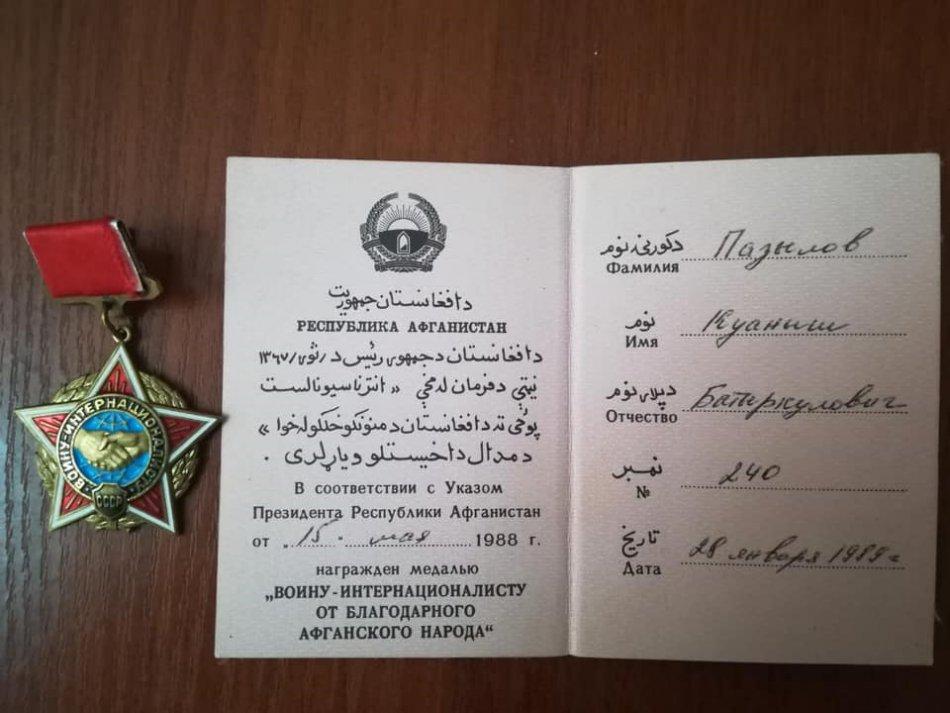 ВОИНУ-ИНТЕРНАЦИОНАЛИСТУ
СССР
دافغانستان جمهوریت
РЕСПУБЛИКА АФГАНИСТАН
دافغانستان دجمهوری رئیس د ۱۳۶۷
نیټې دفرمان له مخې «انترناسیونالست
پوځی ته دافغانستان د خلکو له خوا»
دمدال داخیستلو ویاړلری .
В соответствии с Указом
Президента Республики Афганистан
от „15.“ мая 1988 г.
награжден медалью
„ВОИНУ-ИНТЕРНАЦИОНАЛИСТУ
ОТ БЛАГОДАРНОГО
АФГАНСКОГО НАРОДА“
دکورنۍ نوم
Фамилия Пазылов
نوم
Имя Куаниш
دپلار نوم
Отчество Батыркулович
نمبر
№ 240
تاریخ
Дата 28 января 1989 г